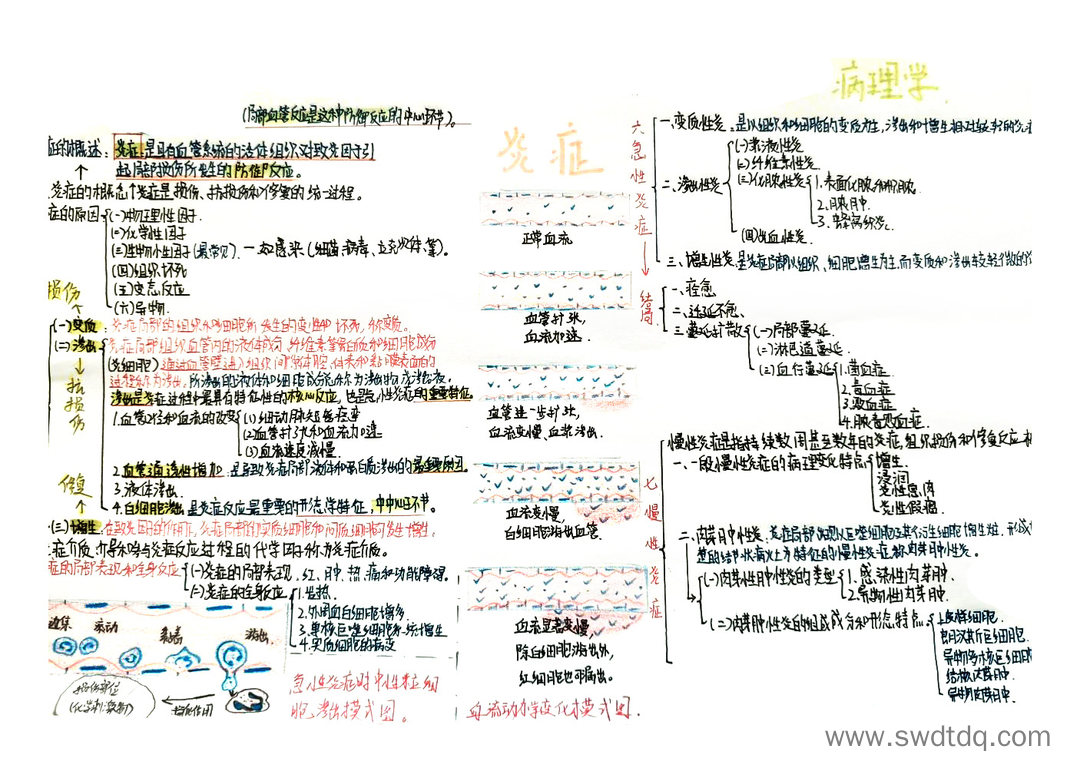 病理学
(局部血管反应是这种防御反应的中心环节)。
炎症
症的概述:炎症是具有血管系统的活体组织对致炎因子引
起局部损伤所发生的防御反应。
炎症的中心是损伤、抗损伤和修复的统一过程。
症的原因
(一)物理性因子.
(二)化学性因子
(三)生物性因子(最常见).一如感染(细菌、病毒、立克次体等).
(四)组织坏死
(五)变态反应
(六)异物.
损伤
(一)变质:炎症局部的组织和细胞所发生的变性和坏死,称变质。
(二)渗出:炎症局部组织血管内的液体成分、纤维素等蛋白质和细胞成分
(炎细胞)通过血管壁进入组织间隙、体腔、体表和黏膜表面的
过程称为渗出,所渗出的液体和细胞成分总称为渗出物或渗出液。
渗出是炎症过程中最具有特征性的核心反应,也是急性炎症的重要特征。
抗损伤
1.血管口径和血流的改变
(1)细动脉短暂痉挛
(2)血管扩张和血流加速
(3)血流速度减慢
2.血管通透性增加:是导致炎症局部液体和蛋白质渗出的最重要原因。
3.液体渗出.
4.白细胞渗出 是炎症反应最重要的形态学特征,中中心环节.
修复
(三)增生:在致炎因子的作用下,炎症局部的实质细胞和间质细胞可发生增生。
症介质:参与介导炎症反应过程的化学因子称为炎症介质。
症的局部表现和全身反应
(一)炎症的局部表现.红、肿、热、痛和功能障碍.
(二)炎症的全身反应
1.发热.
2.外周血白细胞增多.
3.单核巨噬细胞系统增生
4.实质细胞的病变
边集
滚动
黏着
游出
损伤部位
(化学刺激物)
趋化作用
急性炎症时中性粒细
胞渗出模式图。
正常血流
血管扩张,
血流加速.
血管进一步扩张,
血流变慢、血浆渗出.
血流变慢,
白细胞游出血管.
血流显著变慢
除白细胞游出外,
红细胞也可漏出。
血流动力学变化模式图.
六急性炎症
一、变质性炎:是以组织和细胞的变质为主,渗出和增生相对较轻的炎
二、渗出性炎
(一)浆液性炎
(二)纤维素性炎
(三)化脓性炎
1.表面化脓和积脓.
2.脓肿.
3.蜂窝织炎.
(四)出血性炎
三、增生性炎:是炎症局部以组织、细胞增生为主,而变质和渗出较轻微的
结局
一、痊愈
二、迁延不愈、
三、蔓延扩散
(一)局部蔓延.
(二)淋巴道蔓延.
(三)血行蔓延
1.菌血症
2.毒血症
3.败血症
4.脓毒败血症.
七慢性炎症
慢性炎症是指持续数周甚至数年的炎症,组织损伤和修复反应相
一、一般慢性炎症的病理变化特点
增生.
浸润
炎性息肉
炎性假瘤.
二、肉芽肿性炎:炎症局部以巨噬细胞及其衍生细胞增生为主,形成
楚的结节状病灶为特征的慢性炎症称肉芽肿性炎。
(一)肉芽性肿性炎的类型
1.感染性肉芽肿.
2.异物性肉芽肿.
(二)肉芽肿性炎的组成成分和形态特点
上皮样细胞.
朗汉斯巨细胞.
异物多核巨细胞
结核肉芽肿.
异物肉芽肿.
www.swdtdq.com